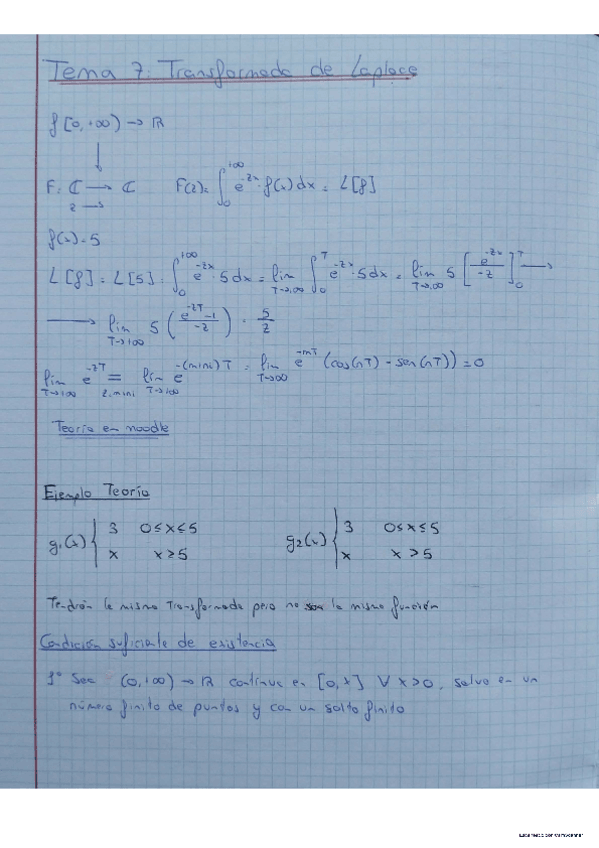 Tema 7: Transformada de Laplace
f [0,+∞) → ℝ
↓
F: ℂ → ℂ F(z) = ∫₀^{+∞} e^{-zx} · f(x) dx = L[f]
z →
f(x) = 5
L[f] = L[5] = ∫₀^{+∞} e^{-zx} · 5 dx = lim_{T→+∞} ∫₀^T e^{-zx} · 5 dx = lim_{T→+∞} 5 [e^{-zx}/-z]₀^T →
→ lim_{T→+∞} 5 (e^{-zT} -1 / -z) = 5/z
lim_{T→+∞} e^{-zT} =_{z=m+ni} lim_{T→+∞} e^{-(m+ni)T} = lim_{T→+∞} e^{-mT} (cos(nT) - sen(nT)) = 0
Teoría en moodle
Ejemplo Teoría
g₁(x) { 3 0≤x≤5 g₂(x) { 3 0≤x≤5
x x≥5 x x>5
Tendrán la misma transformada pero no son la misma función
Condición suficiente de existencia
1º Sea (0,+∞) → ℝ continua en [0,x] ∀ x>0, salvo en un
número finito de puntos y con un salto finito